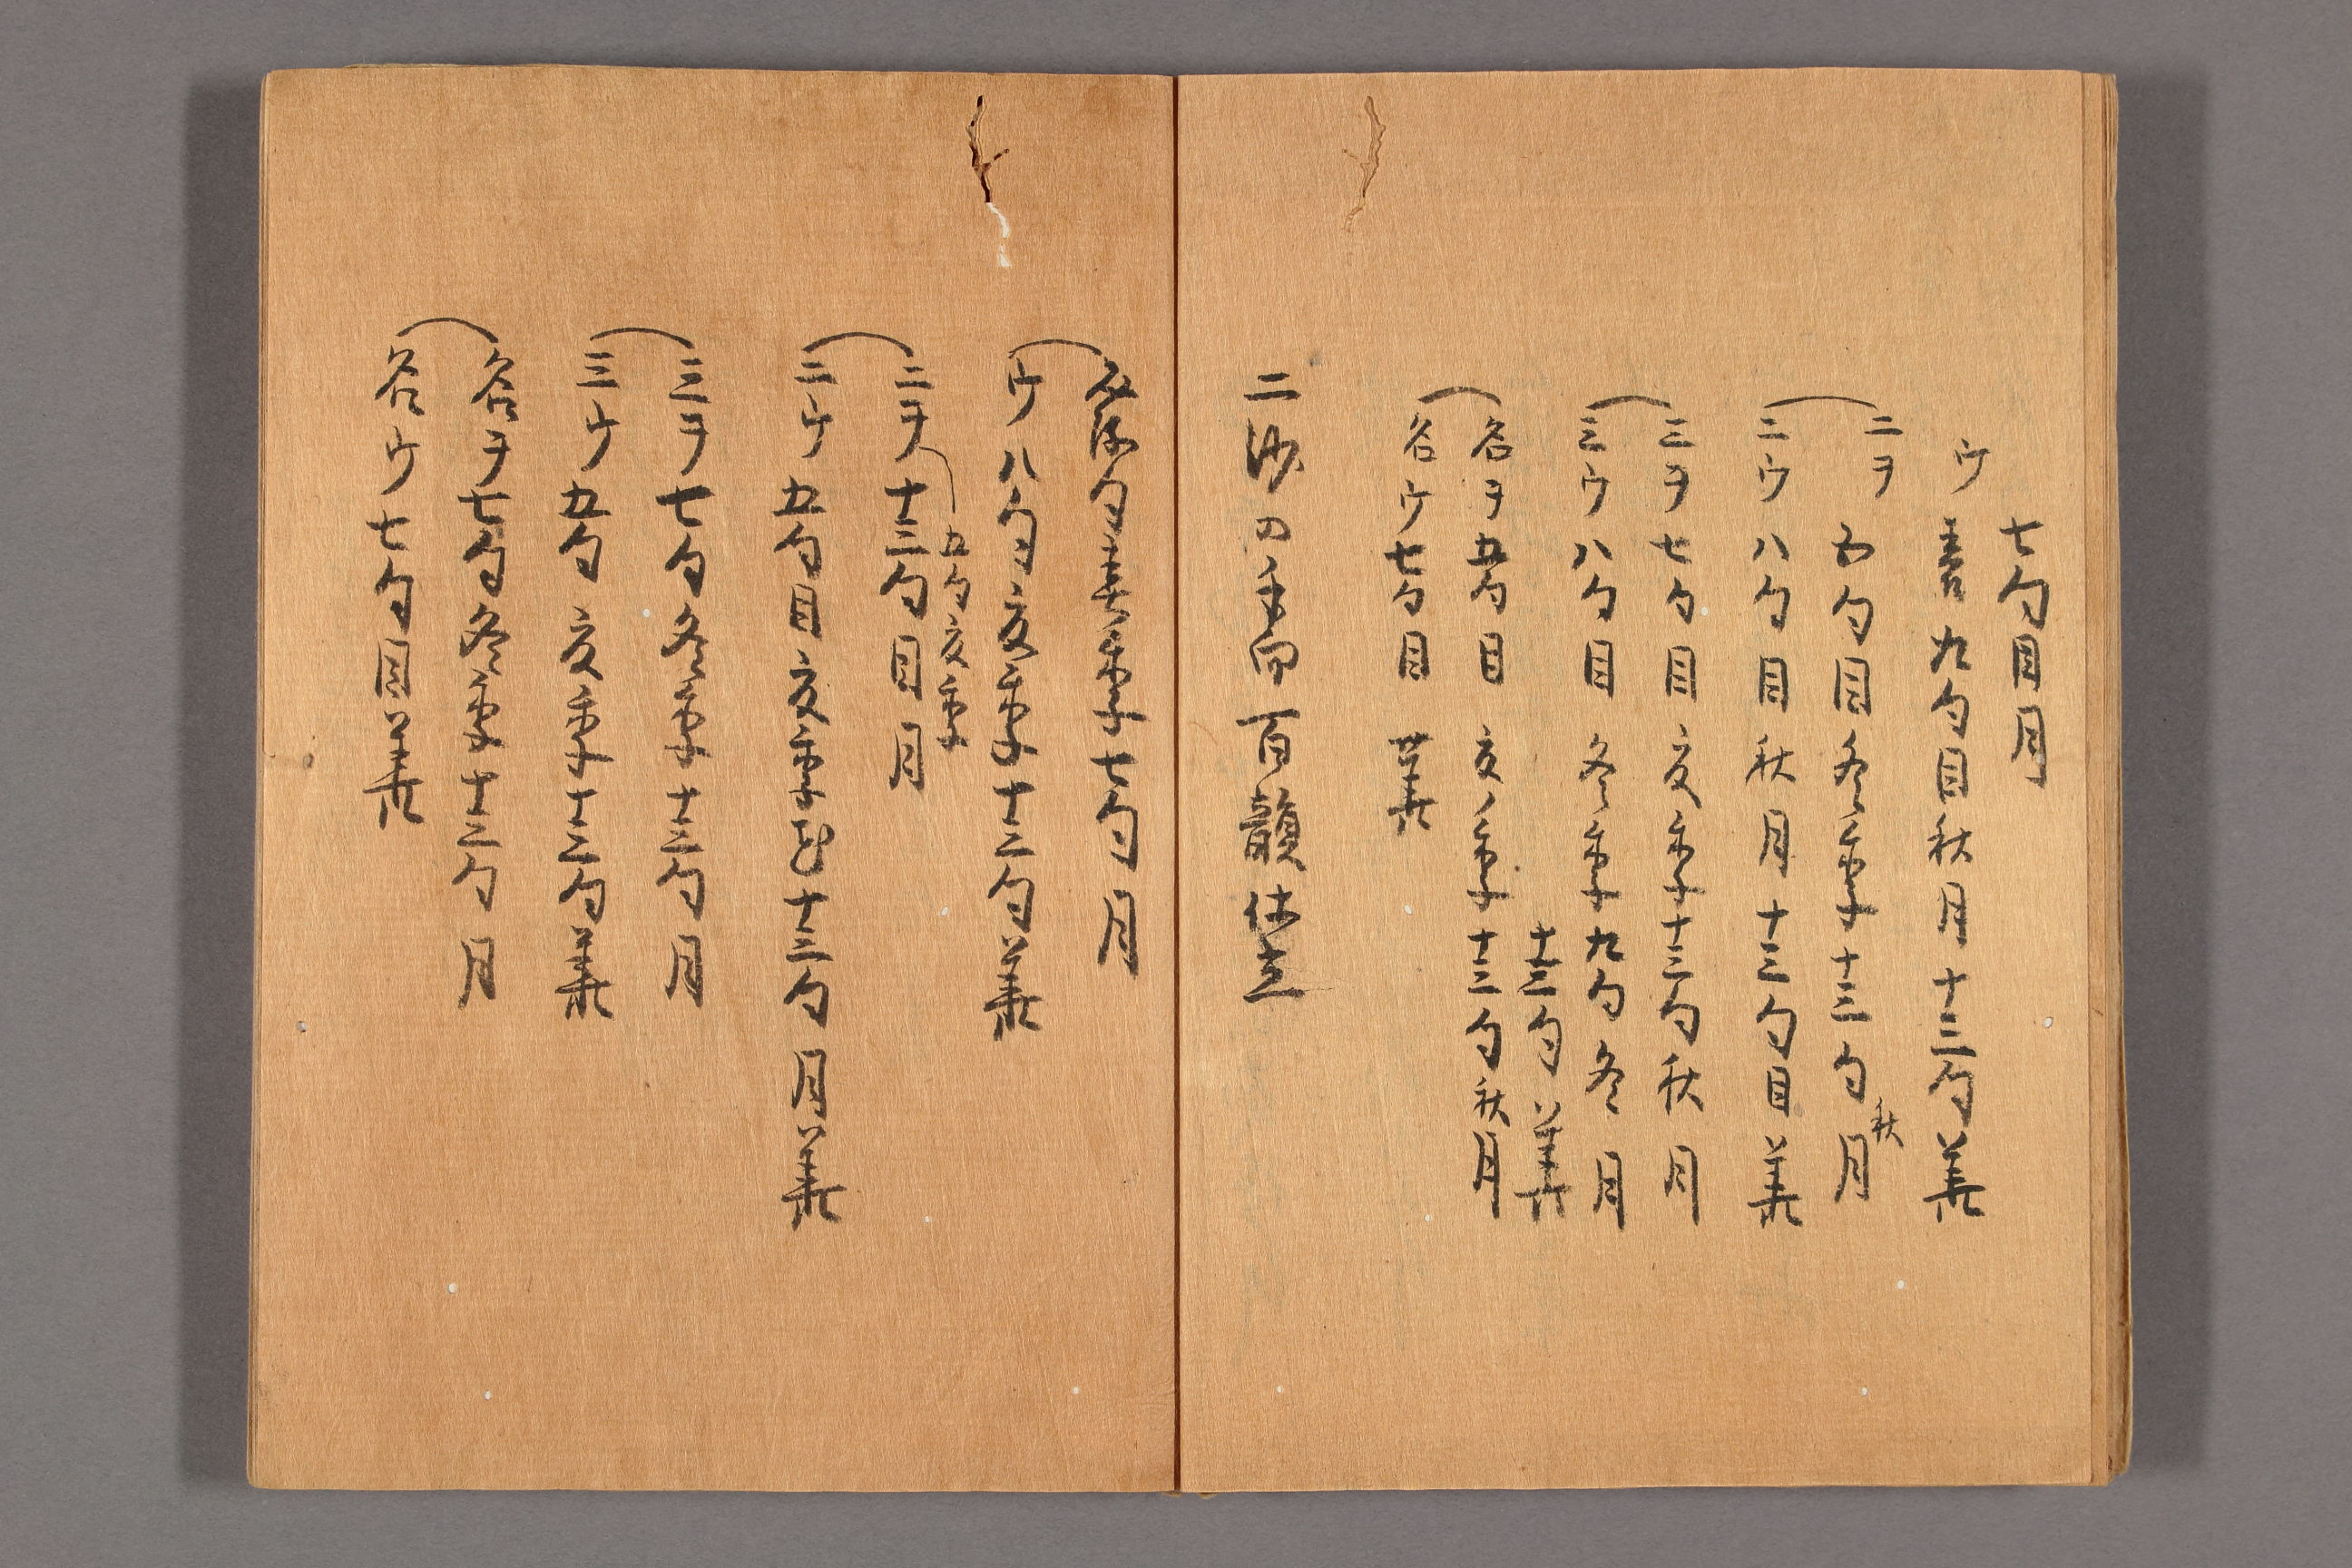 七句目月
ウ 春九句目秋月十三句花
二ヲ 五句目冬季十三句秋月
二ウ 八句目秋月十三句目花
三ヲ 七句目夏季十三句秋月
三ウ 八句目冬季九句冬月
十三句花
名ヲ 五句目夏季十三句秋月
名ウ 七句目花
二沙の手向百韻休立
句春季七句月
ウ 八句夏季十三句花
五句夏季
二ヲ 十三句目月
二ウ 五句目夏季 十三句月花
三ヲ 七句冬季十三句月
三ウ 五句夏季十三句花
名ヲ 七句冬季十三句月
名ウ 七句目花